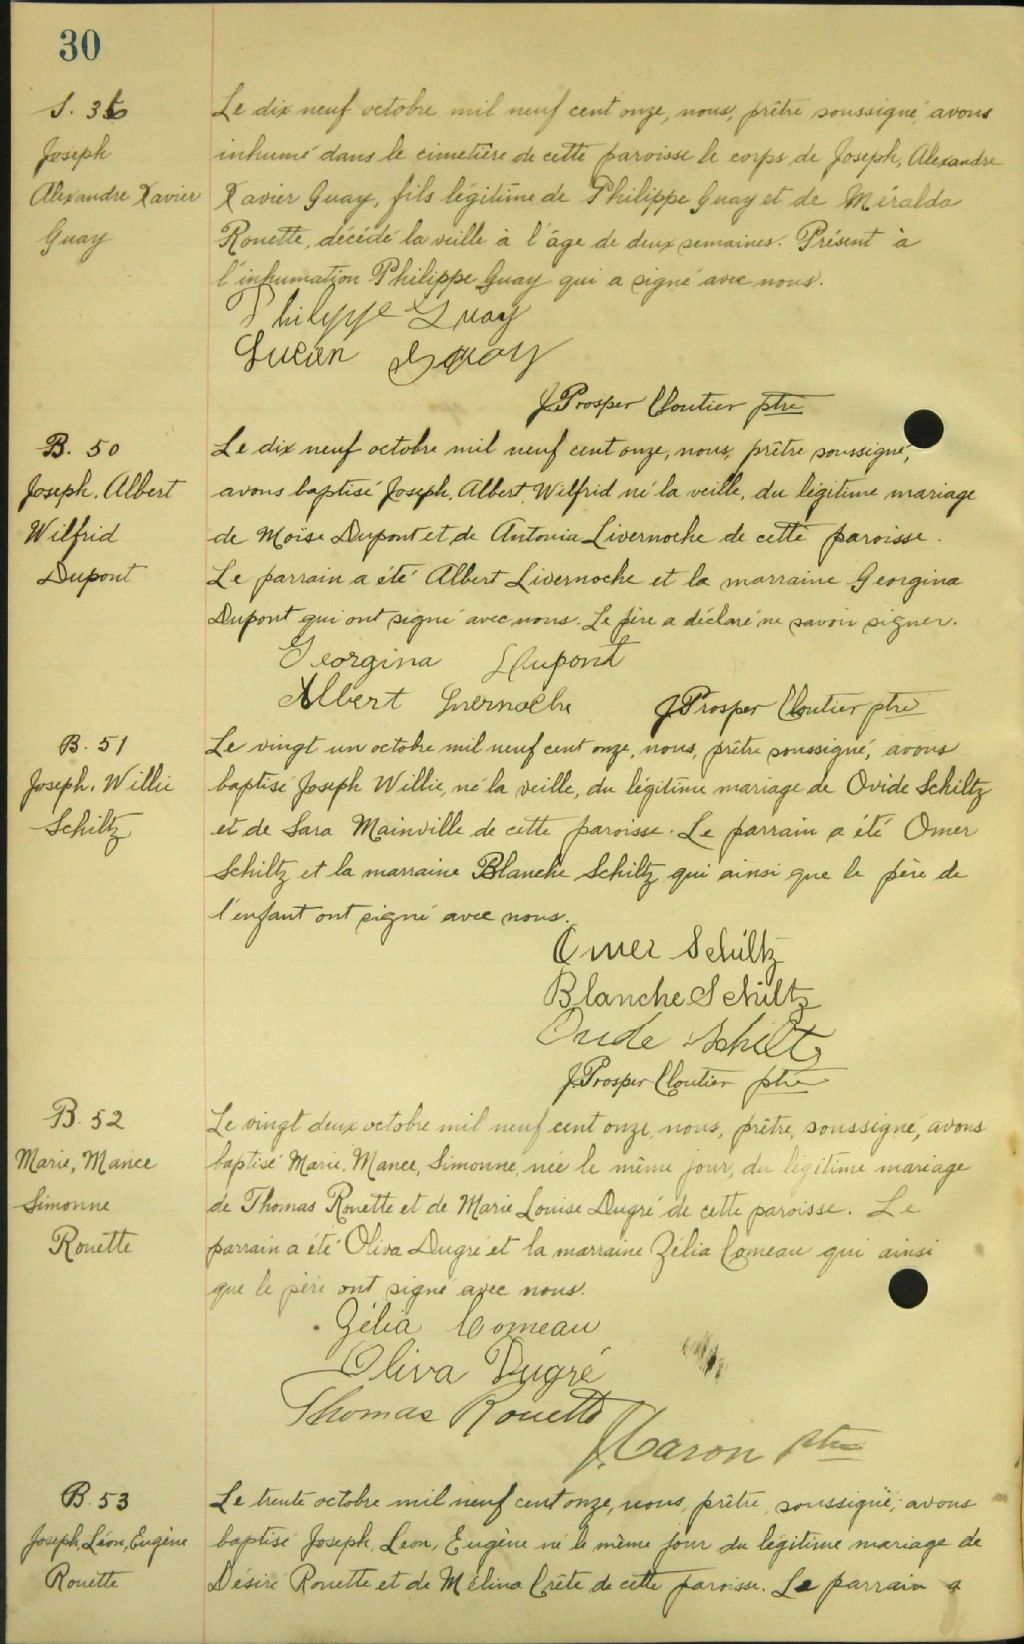 30
S. 36
Joseph
Alexandre Xavier
Guay
Le dix neuf octobre mil neuf cent onze, nous, prêtre soussigné, avons
inhumé dans le cimetière de cette paroisse le corps de Joseph, Alexandre
Xavier Guay, fils légitime de Philippe Guay et de Méralda
Rouette, décédé la veille à l'âge de deux semaines. Présent à
l'inhumation Philippe Guay qui a signé avec nous.
Philippe Guay
Lucien Guay
J. Prosper Cloutier ptre
B. 50
Joseph, Albert
Wilfrid
Dupont
Le dix neuf octobre mil neuf cent onze, nous, prêtre soussigné,
avons baptisé Joseph, Albert, Wilfrid né la veille, du légitime mariage
de Moïse Dupont et de Antonia Livernoche de cette paroisse.
Le parrain a été Albert Livernoche et la marraine Georgina
Dupont qui ont signé avec nous. Le père a déclaré ne savoir signer.
Georgina Dupont
Albert Livernoche J. Prosper Cloutier ptre
B. 51
Joseph, Willie
Schiltz
Le vingt un octobre mil neuf cent onze, nous, prêtre soussigné, avons
baptisé Joseph Willie, né la veille, du légitime mariage de Ovide Schiltz
et de Sara Mainville de cette paroisse. Le parrain a été Omer
Schiltz et la marraine Blanche Schiltz qui ainsi que le père de
l'enfant ont signé avec nous.
Omer Schiltz
Blanche Schiltz
Ovide Schiltz
J. Prosper Cloutier ptre
B. 52
Marie, Mance
Simonne
Rouette
Le vingt deux octobre mil neuf cent onze, nous, prêtre, soussigné, avons
baptisé Marie, Mance, Simonne, née le même jour, du légitime mariage
de Thomas Rouette et de Marie Louise Dugré de cette paroisse. Le
parrain a été Oliva Dugré et la marraine Zélia Comeau qui ainsi
que le père ont signé avec nous.
Zélia Comeau
Oliva Dugré
Thomas Rouette
J. Caron ptre
B. 53
Joseph, Léon, Eugène
Rouette
Le trente octobre mil neuf cent onze, nous, prêtre, soussigné, avons
baptisé Joseph, Leon, Eugène né le même jour du légitime mariage de
Désiré Rouette et de Mélina Crête de cette paroisse. Le parrain a